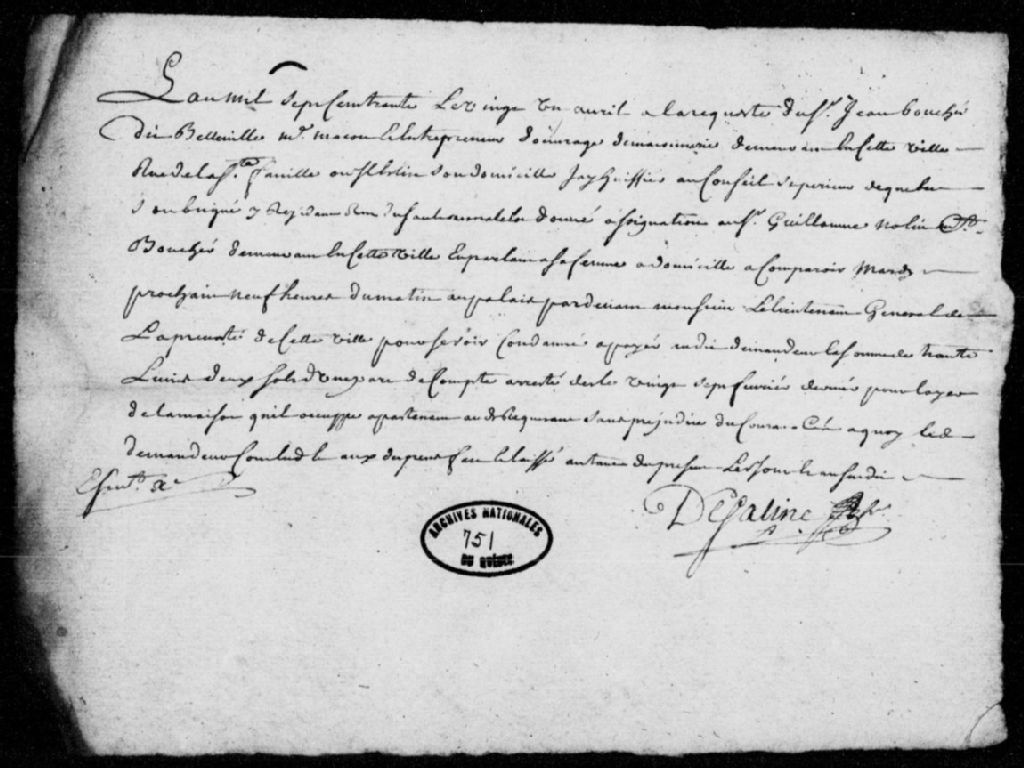 L'an mil sept Cent trente Le vingt un avril a la requeste du Sr. Jean bouché
Dit Belleville Mtre. macon & Entrepreneur d'ouvrage de massonnerie demeurant En Cette ville
Rue de la Ste. famille ou Il Elit son domicille Jay huissier au Conseil superieur de quebec
Soubsigné y Residant Rue du Sault au matelot donné assignation au Sr. Guillaume nolin dt.
Bouché demeurant En Cette ville En parlant a Sa femme a domicille a Comparoir Mardy
prochain neuf heures du matin au palais pardevant monsieur Le lieutenant General de
La prevosté de Cette ville pour se voir Condamné a payer audit demandeur la somme de trente
Livres deux sols d'une part de Compte arresté du le vingt sept fevrier dernier pour loyer
de la maison qu'il occuppe apartenant au dt Requerant Sans prejudice du Courant a quoy led
demandeur Conclud & aux depens fait & laissé autant du present Les Jour & an susdit
DeSaline
ARCHIVES NATIONALES
751
DU QUÉBEC